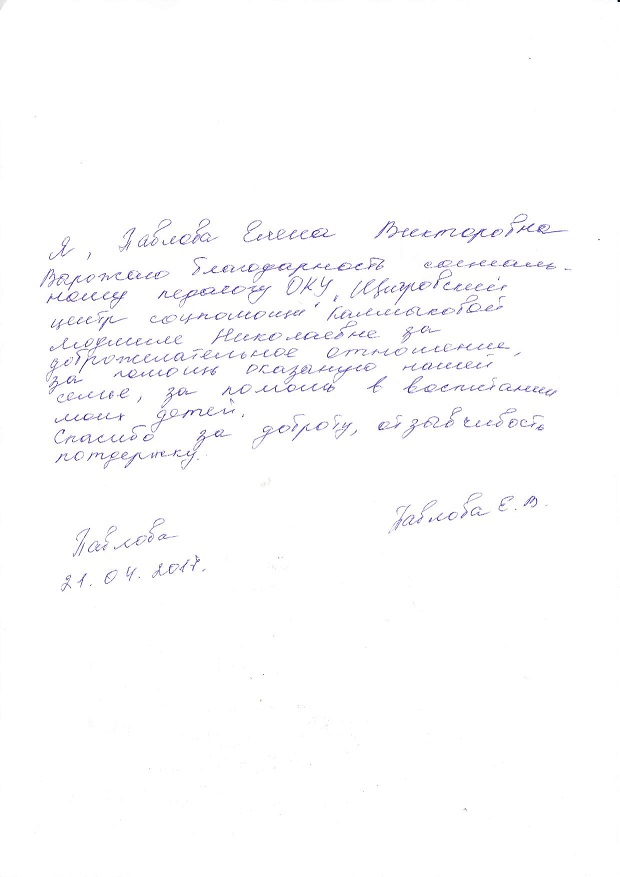 Я, Павлова Елена Викторовна
Варожаю благодарность социаль-
ному педагогу ОКУ „Щигровский
центр соцпомощи" Калмыковой
Людмиле Николаевне за
доброжелательное отношение,
за помощь оказаную нашей
семье, за помощь в воспитании
моих детей.
Спасибо за доброту, отзывчивость
потдержку.
Павлова Е. В.
Павлова
21. 04. 2017.